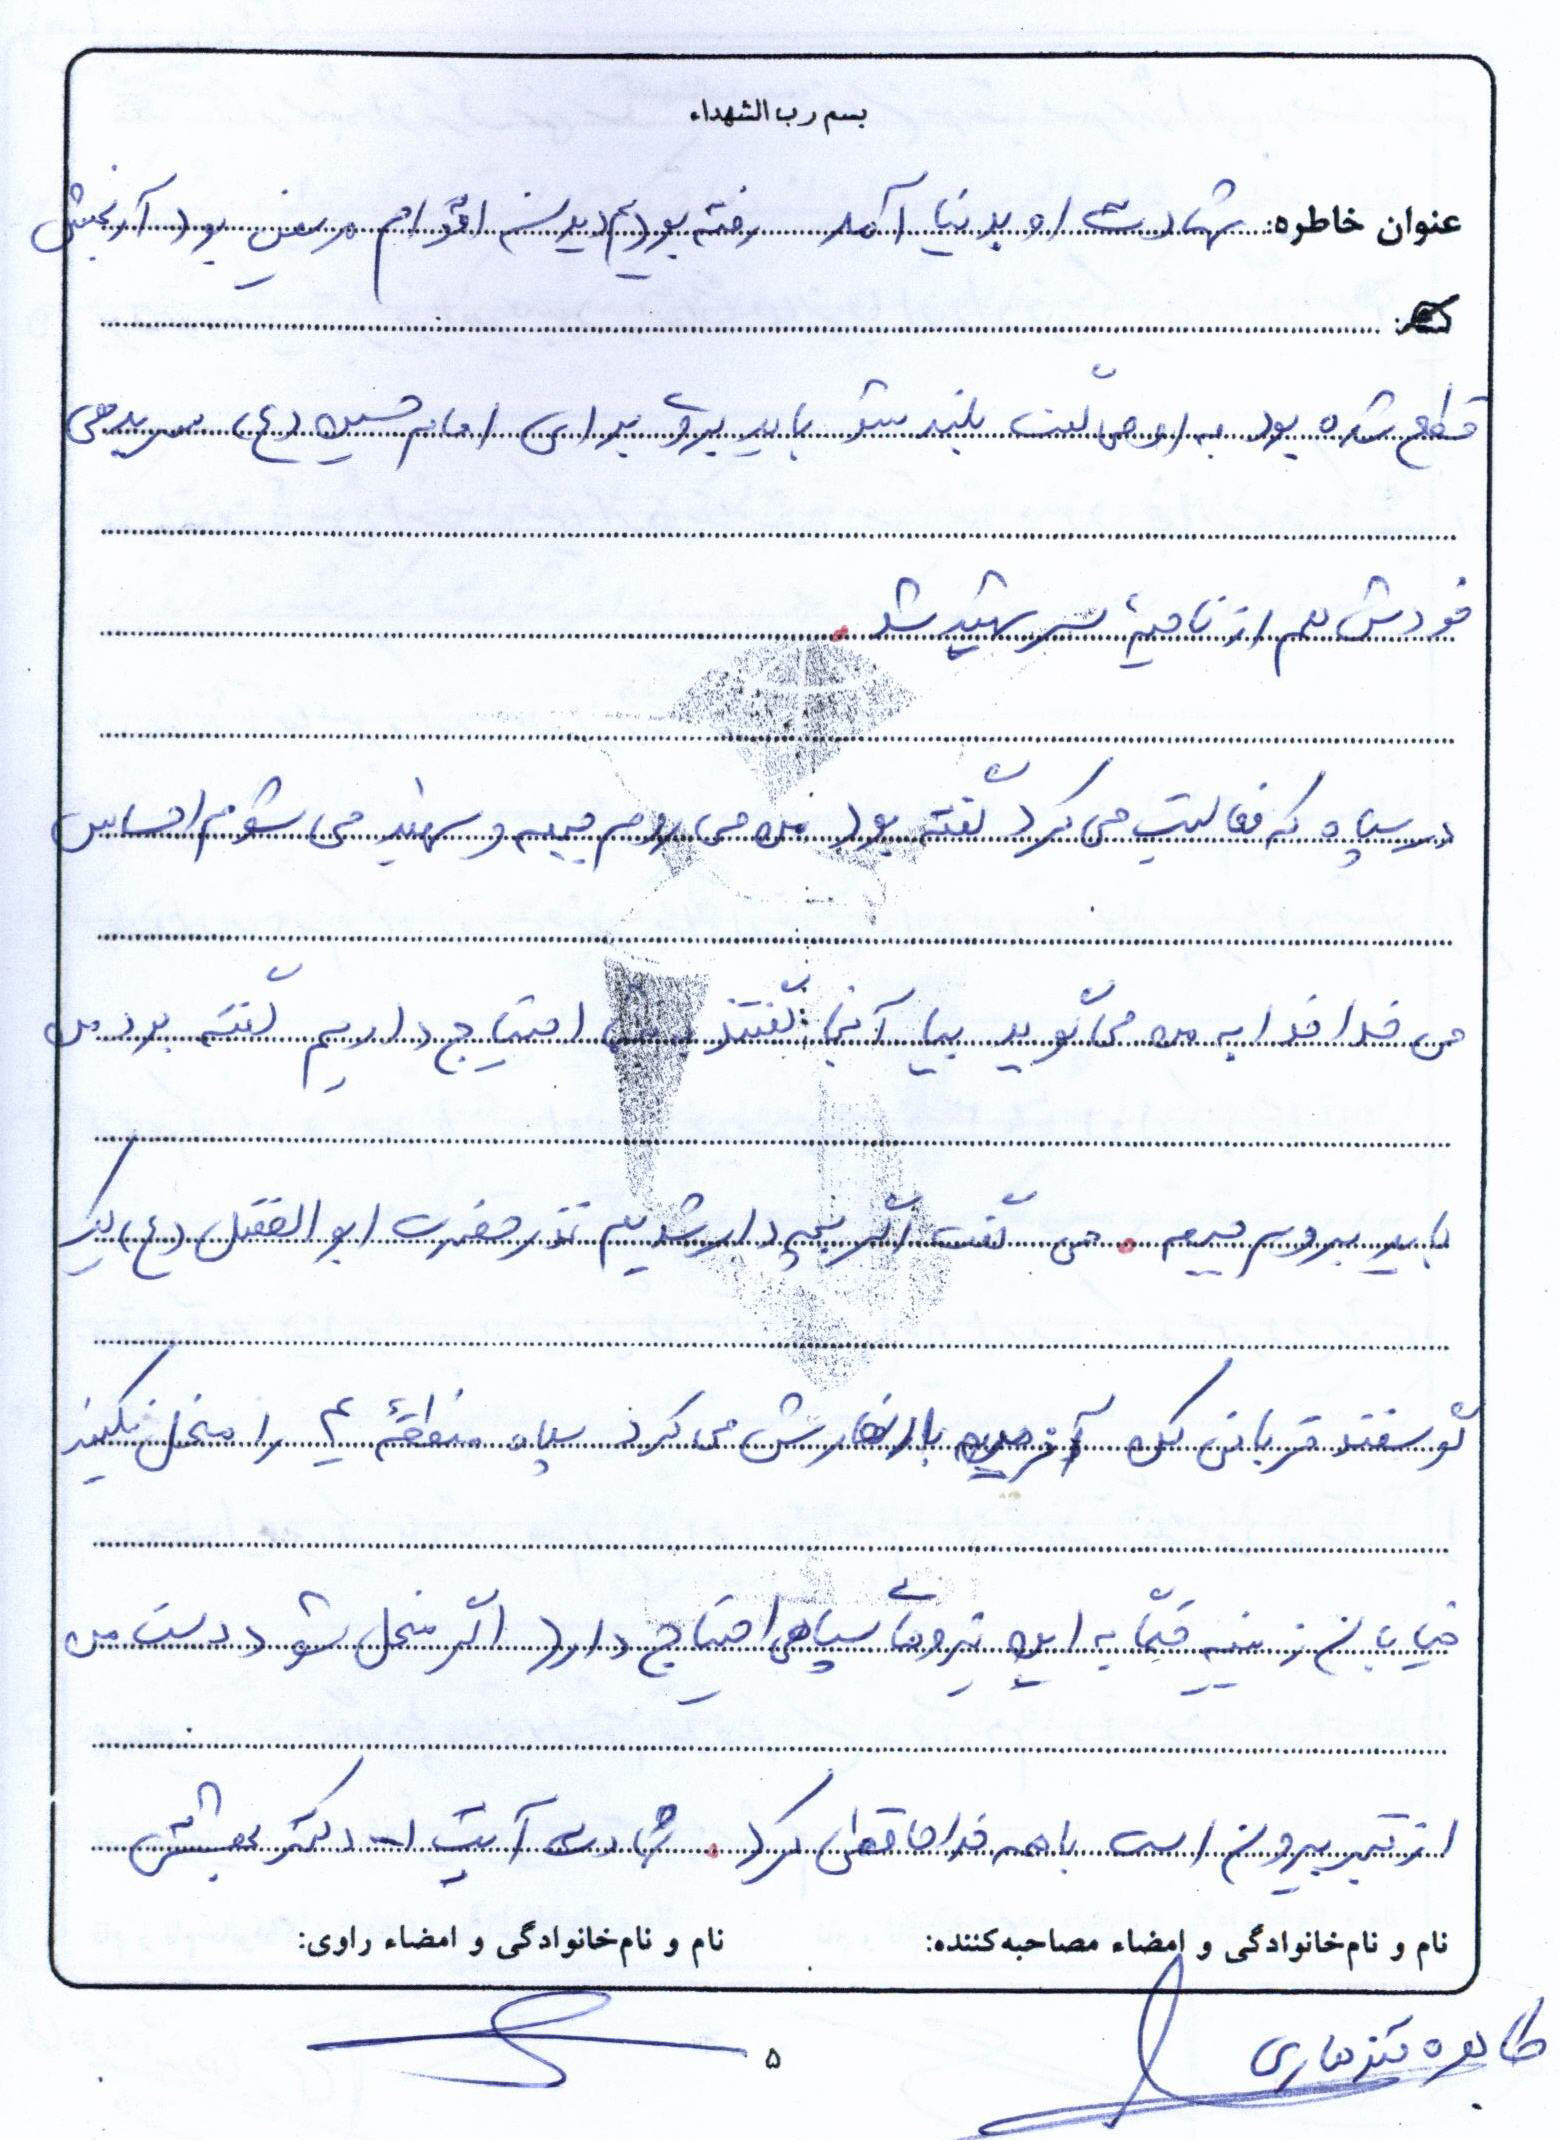 بسم رب الشهداء
عنوان خاطره: شهادت او بدنیا آمد رفته بودیم دیدن اقوام مریض بود آرنجش
قطع شده بود به او می گفت بلند شو باید بروی برای امام حسین (ع) سر بدهی
خودش هم از ناحیهٔ سر شهید شد.
در سپاه که فعالیت می کرد گفته بود من می روم جبهه و شهید می شوم احساس
می خدا خدا به من می گوید بیا آنجا گفتند احتیاج داریم گفته بود من
باید بروم جبهه. می گفت اگر بچه دار شدیم نذر حضرت ابوالفضل (ع) یک
گوسفند قربانی کن آخرین بار سفارش می کرد سپاه منطقهٔ ۴ را منحل نکنید
خیابان زینبیه حتماً به این نیروهای سپاهی احتیاج دارد اگر منحل شود دست من
از قبر بیرون است با همه خداحافظی کرد. شهادت آیت ا... دکتر بهشتی
نام و نام‌خانوادگی و امضاء مصاحبه‌کننده: نام و نام‌خانوادگی و امضاء راوی:
طاهره
۵